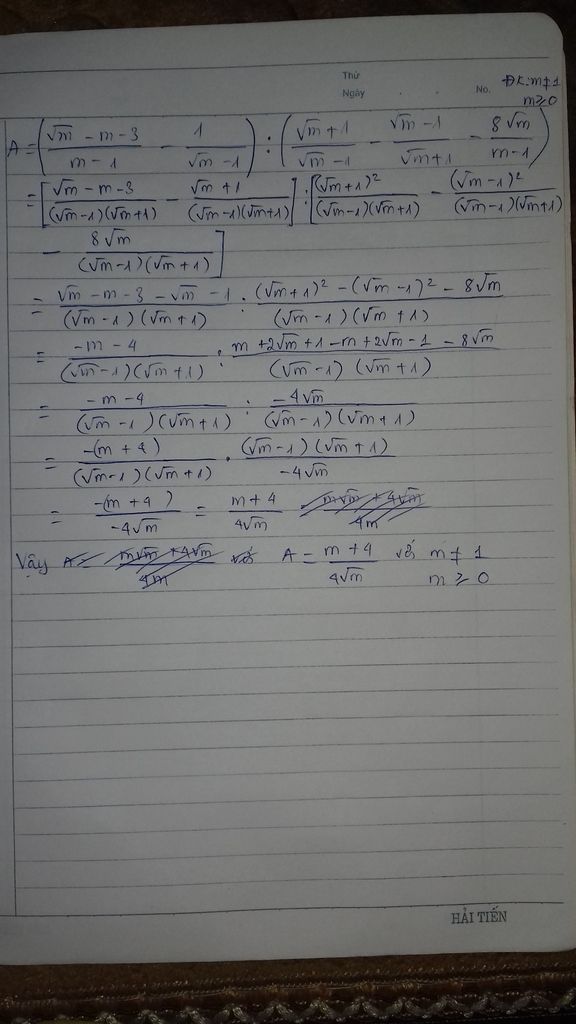 Thứ
Ngày . . No. ĐK: m ≠ 1
m ≥ 0
A = ( (√m - m - 3)/(m - 1) - 1/(√m - 1) ) : ( (√m + 1)/(√m - 1) - (√m - 1)/(√m + 1) - 8√m/(m - 1) )
= [ (√m - m - 3)/((√m - 1)(√m + 1)) - (√m + 1)/((√m - 1)(√m + 1)) ] : [ (√m + 1)²/((√m - 1)(√m + 1)) - (√m - 1)²/((√m - 1)(√m + 1))
- 8√m/((√m - 1)(√m + 1)) ]
= (√m - m - 3 - √m - 1)/((√m - 1)(√m + 1)) : ((√m + 1)² - (√m - 1)² - 8√m)/((√m - 1)(√m + 1))
= (-m - 4)/((√m - 1)(√m + 1)) : (m + 2√m + 1 - m + 2√m - 1 - 8√m)/((√m - 1)(√m + 1))
= (-m - 4)/((√m - 1)(√m + 1)) : (-4√m)/((√m - 1)(√m + 1))
= (-(m + 4))/((√m - 1)(√m + 1)) . ((√m - 1)(√m + 1))/(-4√m)
= (-(m + 4))/(-4√m) = (m + 4)/(4√m) = (m√m + 4√m)/(4m)
Vậy A = (m√m + 4√m)/(4m) với A = (m + 4)/(4√m) với m ≠ 1
m ≥ 0
HẢI TIẾN